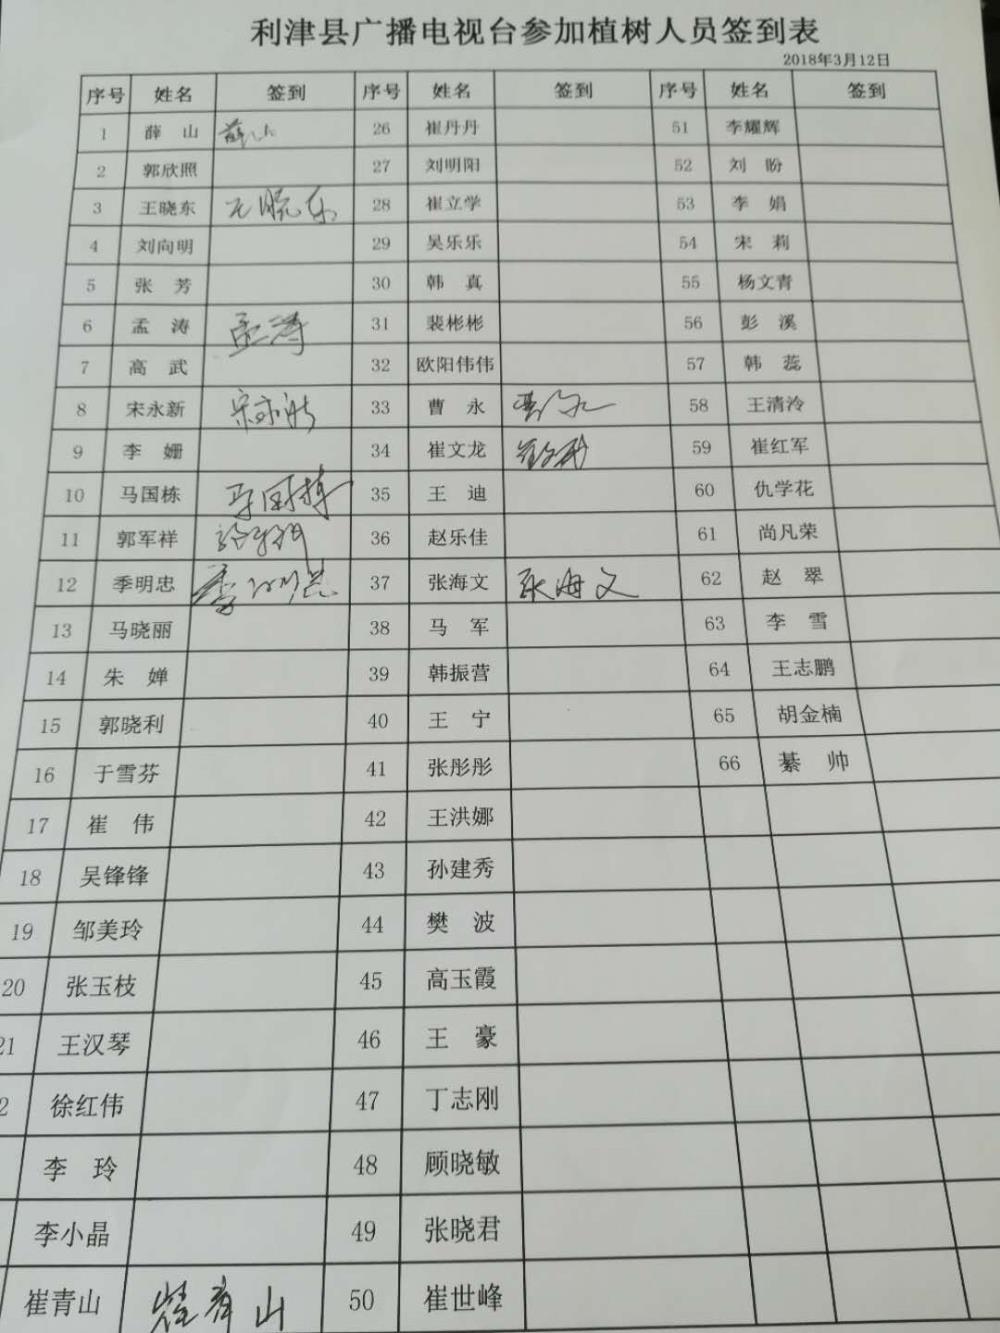 利津县广播电视台参加植树人员签到表
2018年3月12日
序号 姓名 签到 序号 姓名 签到 序号 姓名 签到
1 薛 山 薛山 26 崔丹丹 51 李耀辉
2 郭欣照 27 刘明阳 52 刘 盼
3 王晓东 王晓东 28 崔立学 53 李 娟
4 刘向明 29 吴乐乐 54 宋 莉
5 张 芳 30 韩 真 55 杨文青
6 孟 涛 孟涛 31 裴彬彬 56 彭 溪
7 高 武 32 欧阳伟伟 57 韩 蕊
8 宋永新 宋永新 33 曹 永 曹永 58 王清泠
9 李 姗 34 崔文龙 崔文龙 59 崔红军
10 马国栋 马国栋 35 王 迪 60 仇学花
11 郭军祥 郭军祥 36 赵乐佳 61 尚凡荣
12 季明忠 季明忠 37 张海文 张海文 62 赵 翠
13 马晓丽 38 马 军 63 李 雪
14 朱 婵 39 韩振营 64 王志鹏
15 郭晓利 40 王 宁 65 胡金楠
16 于雪芬 41 张彤彤 66 綦 帅
17 崔 伟 42 王洪娜
18 吴锋锋 43 孙建秀
19 邹美玲 44 樊 波
20 张玉枝 45 高玉霞
21 王汉琴 46 王 豪
2 徐红伟 47 丁志刚
李 玲 48 顾晓敏
李小晶 49 张晓君
崔青山 崔青山 50 崔世峰